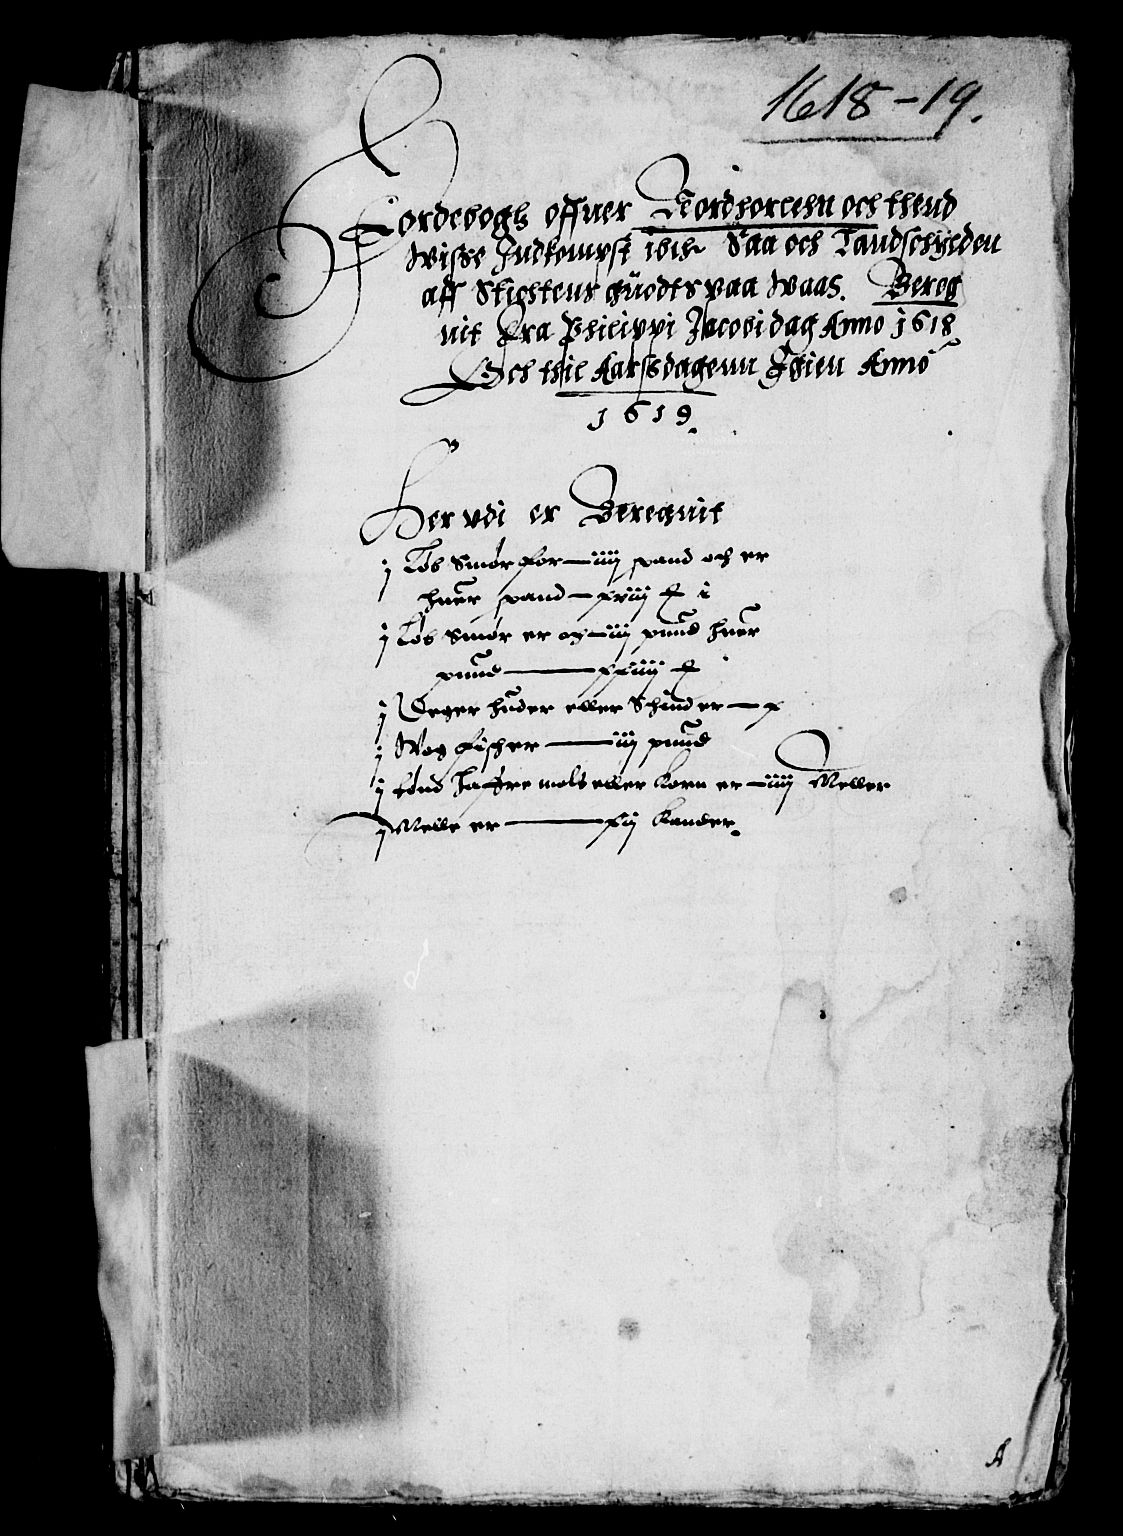 1618-19.
Jordebogh offuer Nordhorlehn och thend
Wisse Indkompst ibid~ Saa och Landschylden
aff Stichtens guodts paa Waas. Bereg
nit fra Philippi Jacobi dag Anno 1618
Och thil Aarssdagenn Igien Anno
1619.
Her vdi er Beregnit
j Løb Smør for — iiij pand och er
huer pand — xviij
j Løb Smør er og — iiij pund huer
pund — xxiiij
j Deger huder eller Schind er — x
j Wog fisch er — iij pund
j tønd Haffre molt eller Korn er — iiij Meller
j Melle er — xij Kander.
A